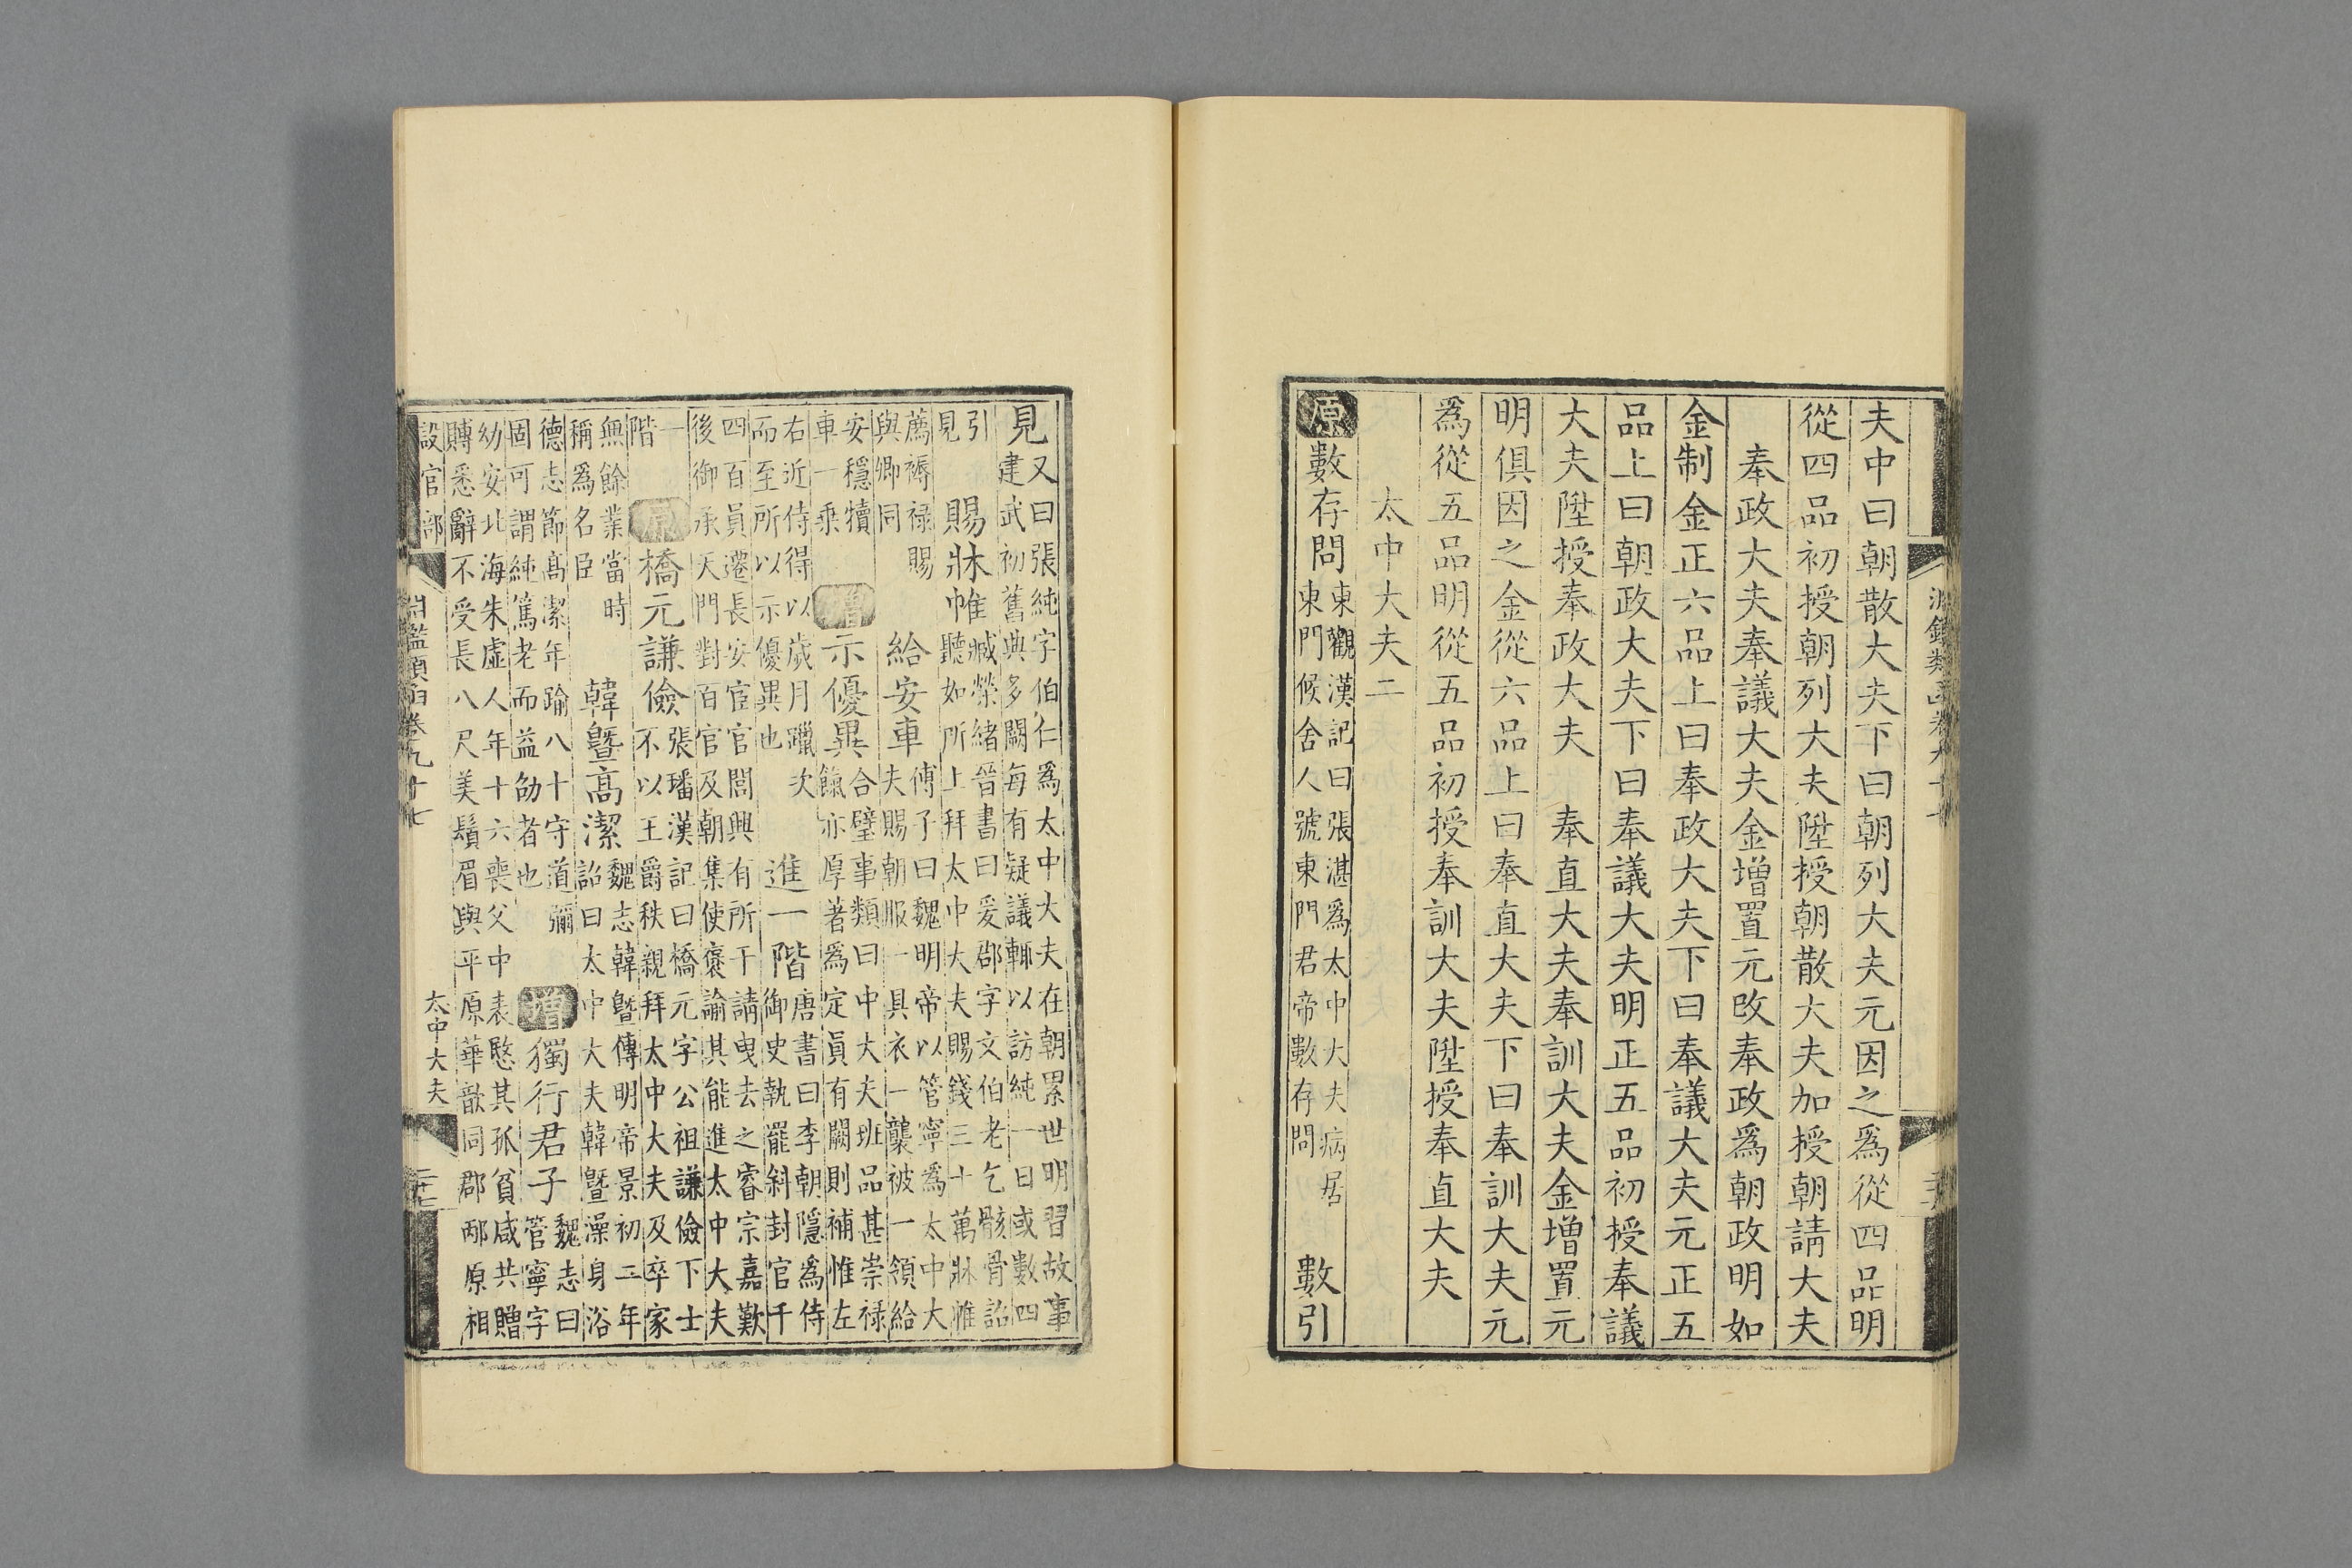 夫中曰朝散大夫下曰朝列大夫元因之爲從四品明
從四品初授朝列大夫陞授朝散大夫加授朝請大夫
奉政大夫奉議大夫金增置元改奉政爲朝政明如
金制金正六品上曰奉政大夫下曰奉議大夫元正五
品上曰朝政大夫下曰奉議大夫明正五品初授奉議
大夫陞授奉政大夫 奉直大夫奉訓大夫金增置元
明俱因之金從六品上曰奉直大夫下曰奉訓大夫元
爲從五品明從五品初授奉訓大夫陞授奉直大夫
太中大夫二
原數存問 東觀漢記曰張湛爲太中大夫病居
東門候舍人號東門君帝數存問 數引
見 又曰張純字伯仁爲太中大夫在朝累世明習故事
建武初舊典多闕每有疑議輒以訪純一日或數四
引
見 賜牀帷 臧榮緒晉書曰爰郡字文伯老乞骸骨詔
聽如所上拜太中大夫賜錢三十萬牀帷
薦褥祿賜
與卿同 給安車 傅子曰魏明帝以管寧爲太中大
夫賜朝服一具衣一襲被一領給
安穩犢
車一乘 增示優異 合璧事類曰中大夫班品甚崇祿
餼亦厚著爲定員有闕則補惟左
右近侍得以歲月躐次
而至所以示優異也 進一階 唐書曰李朝隱爲侍
御史執罷斜封官千
四百員遷長安宦官閻興有所干請曳去之睿宗嘉歎
後御承天門對百官及朝集使褒諭其能進太中大夫
一
階 原橋元謙儉 張璠漢記曰橋元字公祖謙儉下士
不以王爵秩親拜太中大夫及卒家
無餘業當時
稱爲名臣 韓曁高潔 魏志韓曁傳明帝景初二年
詔曰太中大夫韓曁澡身浴
德志節高潔年踰八十守道彌
固可謂純篤老而益劭者也 增獨行君子 魏志曰
管寧字
幼安北海朱虛人年十六喪父中表愍其孤貧咸共贈
賻悉辭不受長八尺美鬚眉與平原華歆同郡邴原相
淵鑑類函卷九十七 太中大夫